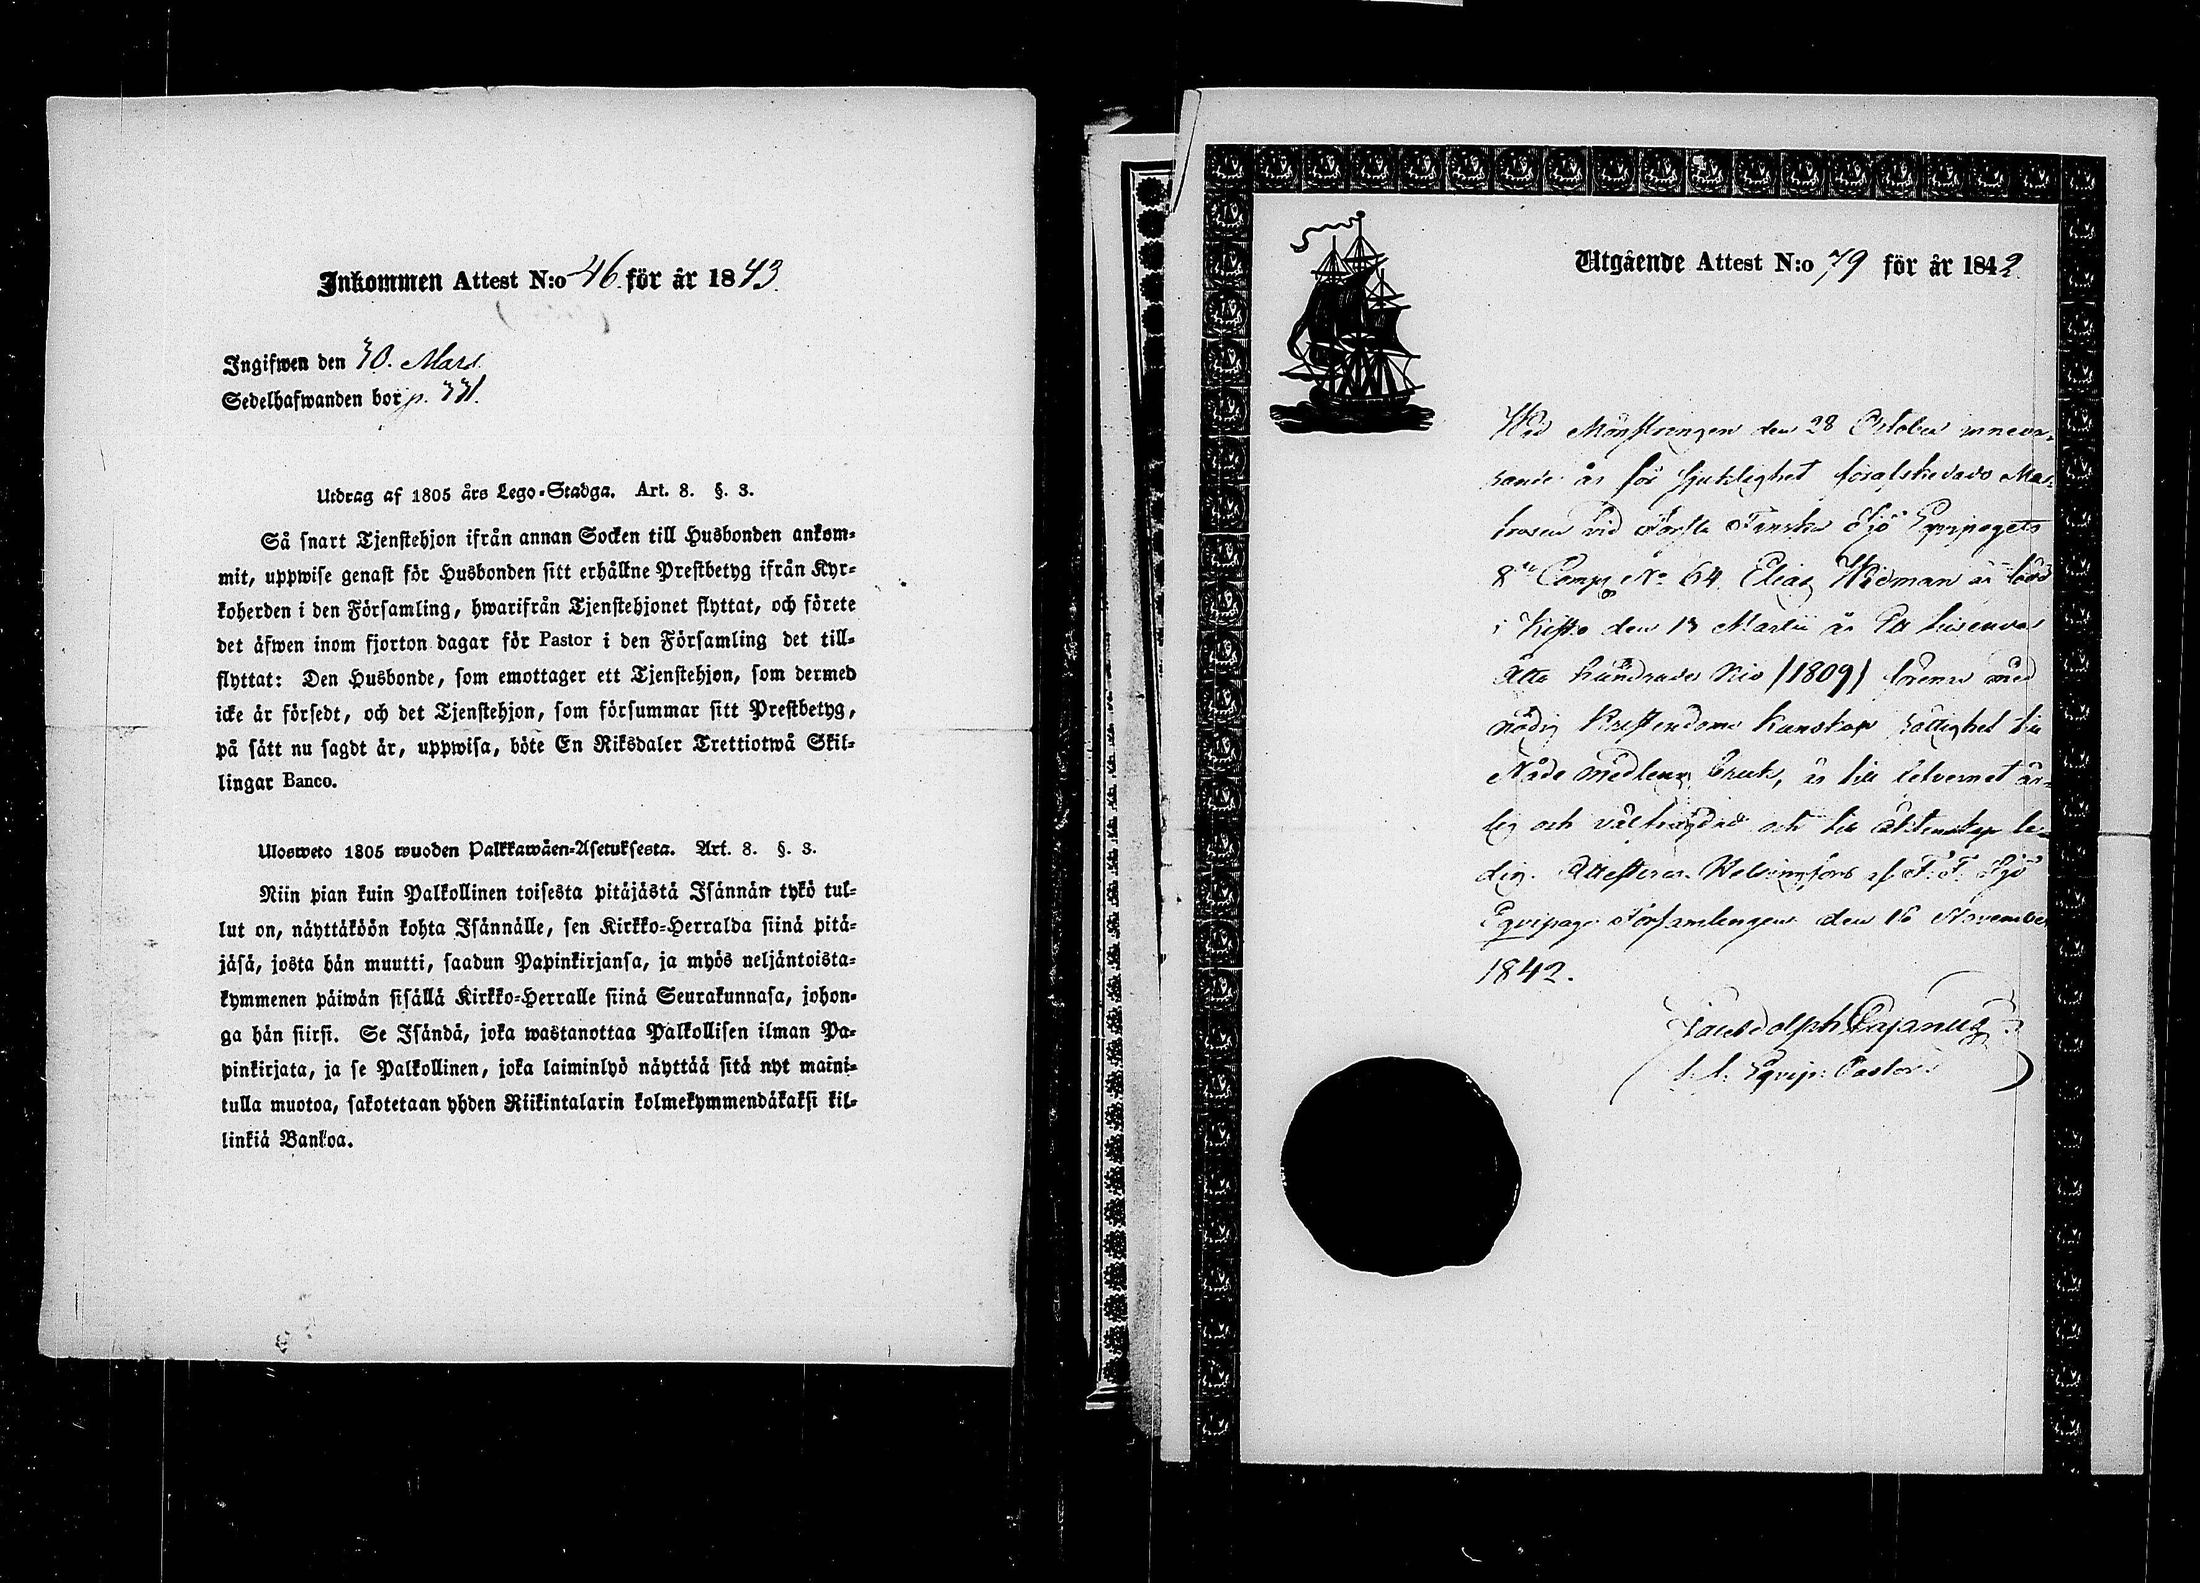 Inkommen Attest N:o 46. för år 1843.
Ingifwen den 30. Mars.
Sedelhafwanden bor p. 331.
Utdrag af 1805 års Lego-Stadga. Art. 8. §. 3.
Så snart Tjenstehjon ifrån annan Socken till Husbonden ankom-
mit, uppwise genast för Husbonden sitt erhållne Prestbetyg ifrån Kyr-
koherden i den Församling, hwarifrån Tjenstehjonet flyttat, och förete
det äfwen inom fjorton dagar för Pastor i den Församling det till-
flyttat: Den Husbonde, som emottager ett Tjenstehjon, som dermed
icke är försedt, och det Tjenstehjon, som försummar sitt Prestbetyg,
på sätt nu sagdt är, uppwisa, böte En Riksdaler Trettiotwå Skil-
lingar Banco.
Ulosweto 1805 wuoden Palkkawäen-Asetuksesta. Art. 8. §. 3.
Niin pian kuin Palkollinen toisesta pitäjästä Isännän tykö tul-
lut on, näyttäköön kohta Isännälle, sen Kirkko-Herralda siinä pitä-
jäsä, josta hän muutti, saadun Papinkirjansa, ja myös neljäntoista-
kymmenen päiwän sisällä Kirkko-Herralle siinä Seurakunnasa, johon-
ga hän siirsi. Se Isändä, joka wastanottaa Palkollisen ilman Pa-
pinkirjata, ja se Palkollinen, joka laiminlyö näyttää sitä nyt maini-
tulla muotoa, sakotetaan yhden Riikintalarin kolmekymmendäkaksi kil-
linkiä Bankoa.
Utgående Attest N:o 79 för år 1842
Wid Mönstringen den 28 October inneva-
rande år för sjuklighet förafskedade Mat-
trosen vid Första Finska Sjö Equipagets
8de Comp. No 64 Elias Widman är född
i Kisko den 13 Martii år Ett tusende
Åtta hundrade Nio (1809) förenar med
nödig Christendoms kunskap
Nåde medlens bruk, är till lefvernet är-
lig och välfrägdad och till äktenskap le-
dig. Attesterar. Helsingfors af F. F. Sjö
Equipage Församlingen den 16 November
1842.
Cajanus
Equip: Pastor.